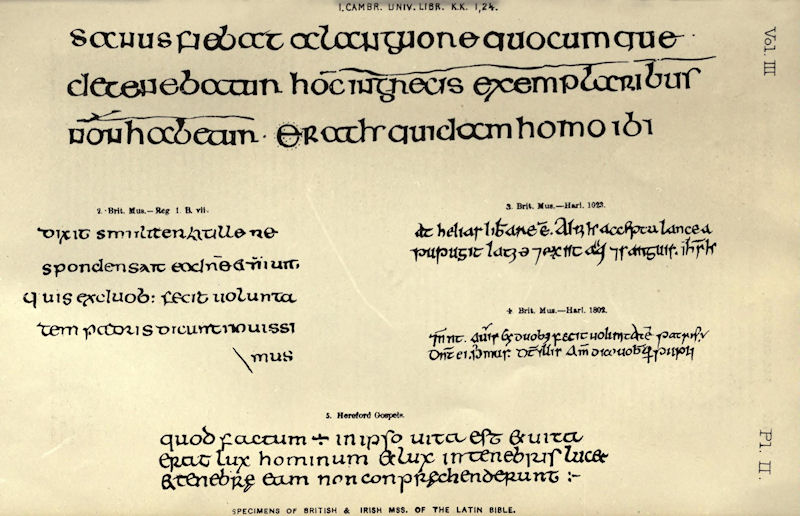 1. CAMBR. UNIV. LIBR. K.K. 1,24.
Vol. III
sanus fiebat a languone quocumque
detenebatur hoc in grecis exemplaribus
non habetur · Erat quidam homo ibi
2. Brit. Mus.— Reg 1. B. vii.
dixit similiter at ille re
spondens ait eo
quis ex duob: fecit uolunta
tem patris dicunt nouissi
mus
3. Brit. Mus.—Harl. 1023.
accepta lancea
pupugit lat; 7 exiit 7 sanguis.
4. Brit. Mus.—Harl. 1802.
fecit uoluntatē patris
5. Hereford Gospels.
quod factum ÷ in ipso uita est & uita
erat lux hominum & lux in tenebris lucet
& tenebrę eam non conprehenderunt :-
Pl. II.
SPECIMENS OF BRITISH & IRISH MSS. OF THE LATIN BIBLE.